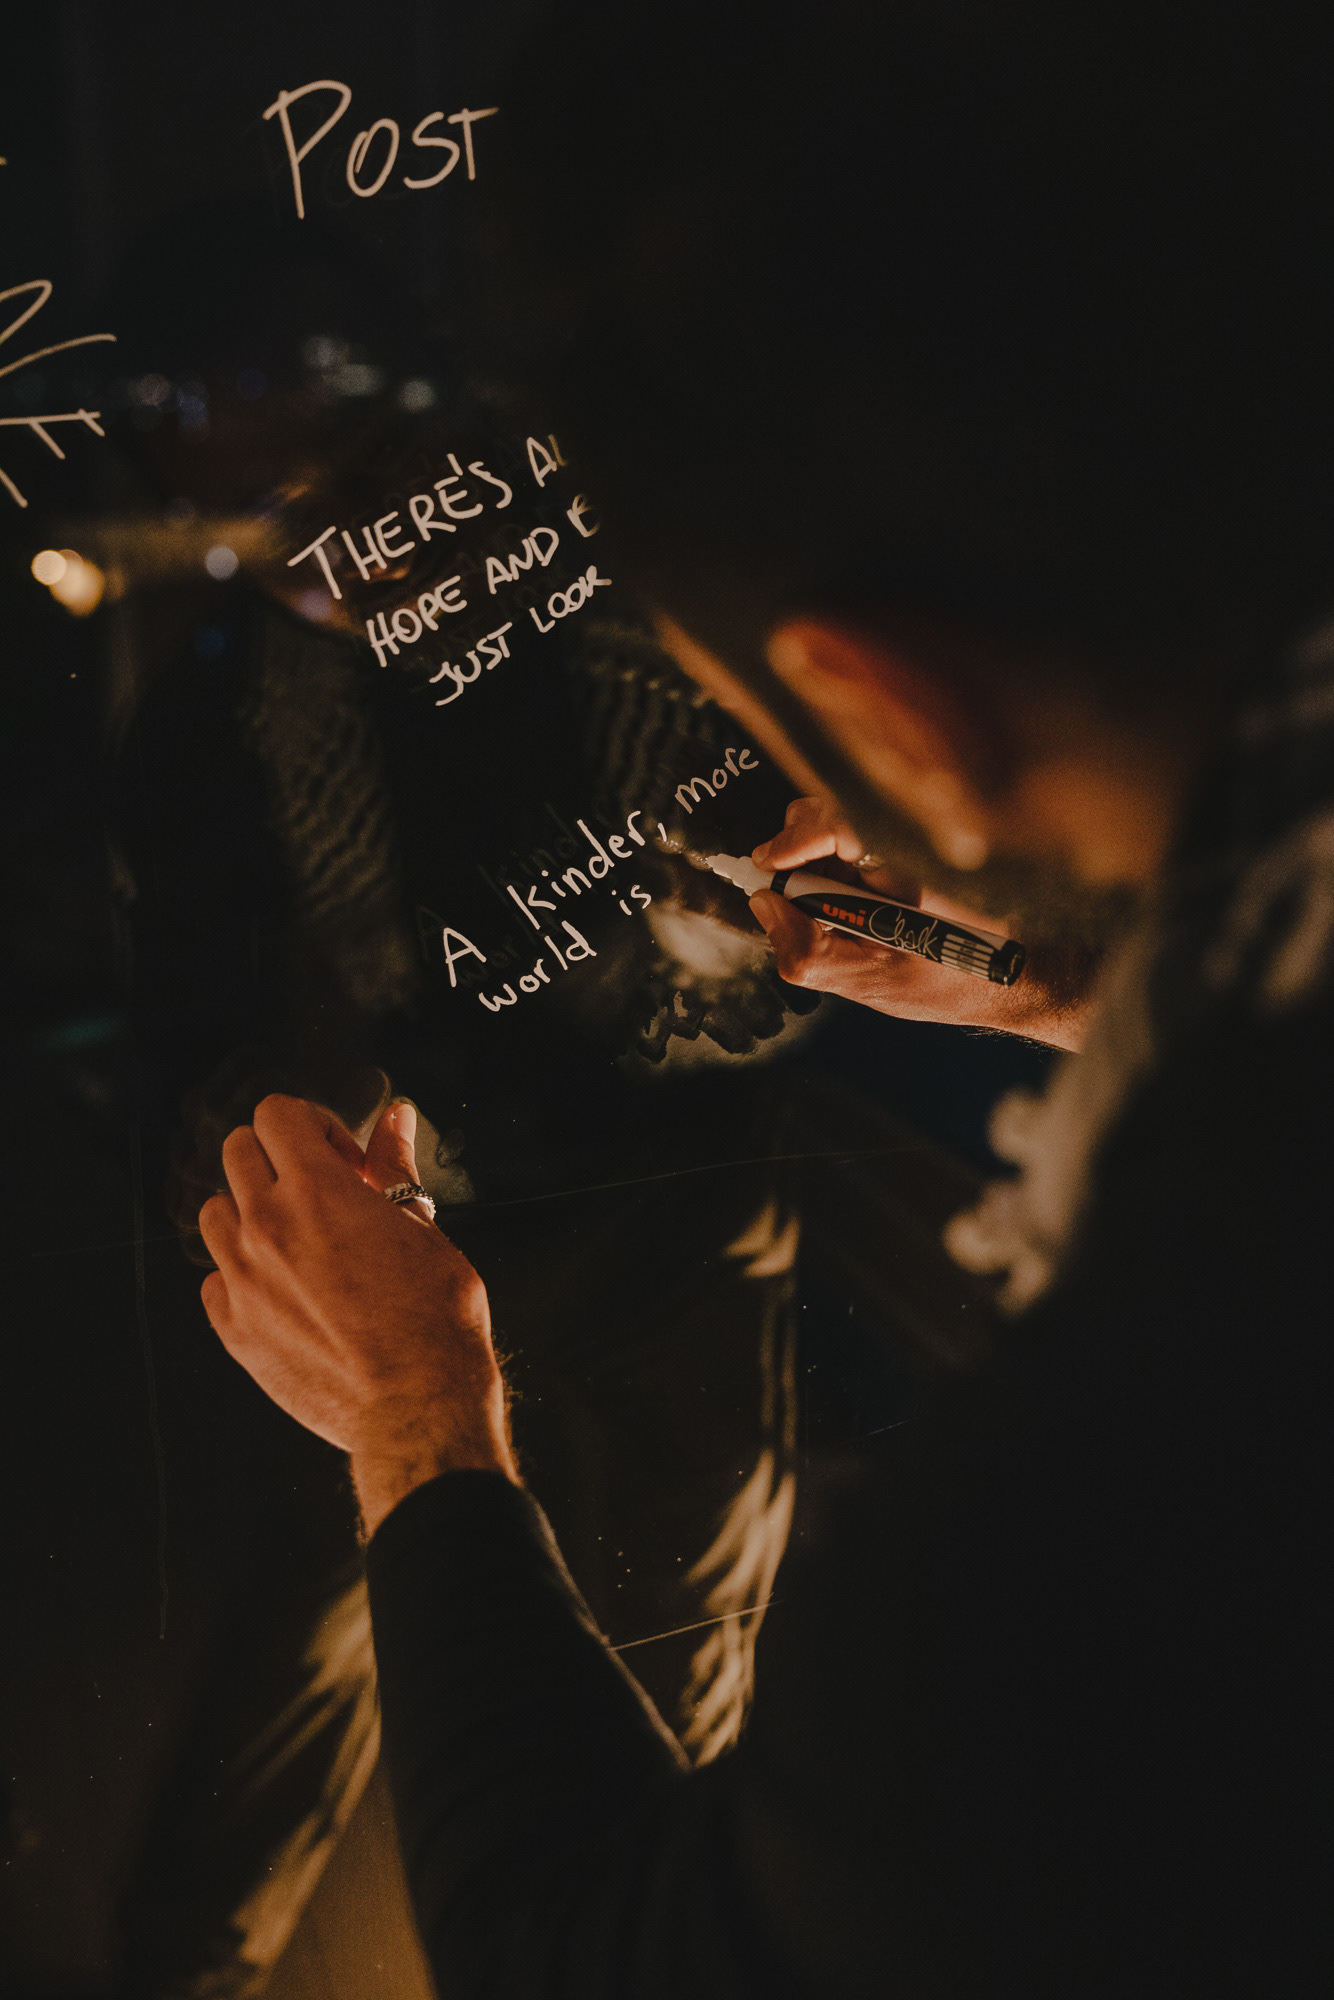 POST
THERE'S
HOPE AND
JUST LOOK
A kinder, more
world is
uni Chalk